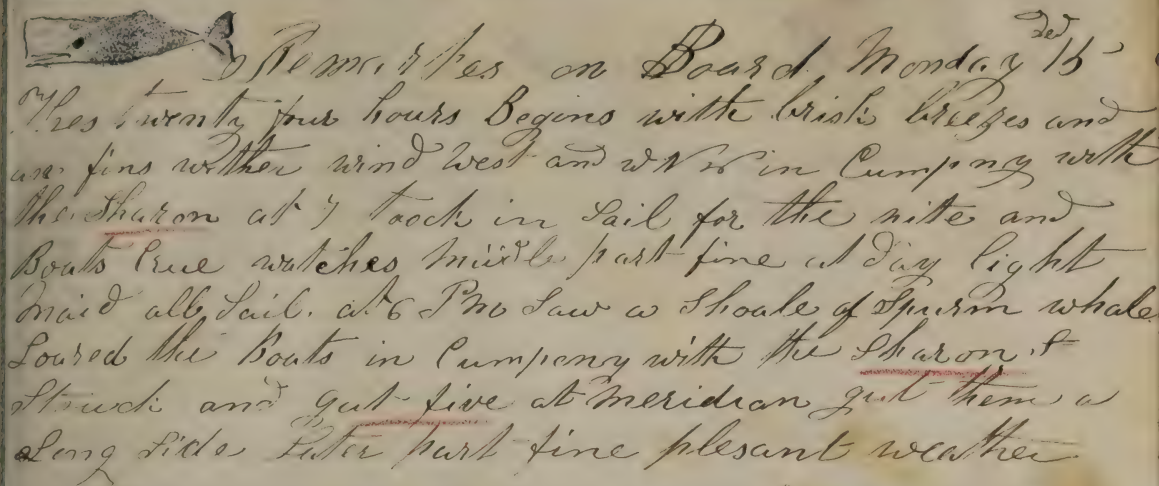 Remarkes on Board Monday 15
Thes twenty four hours Begins with brisk breezes and
fine wether wind West and WNW in Cumpny with
the Sharon at 7 toock in Sail for the nite and
Boats Crue watches middle part fine at day light
maid all Sail. at 6 PM Saw a Shoale of Spurm whale
Loured the Boats in Cumpeny with the Sharon &
Struck and gut five at meridian gut them a
Long Side Later part fine plesant weather